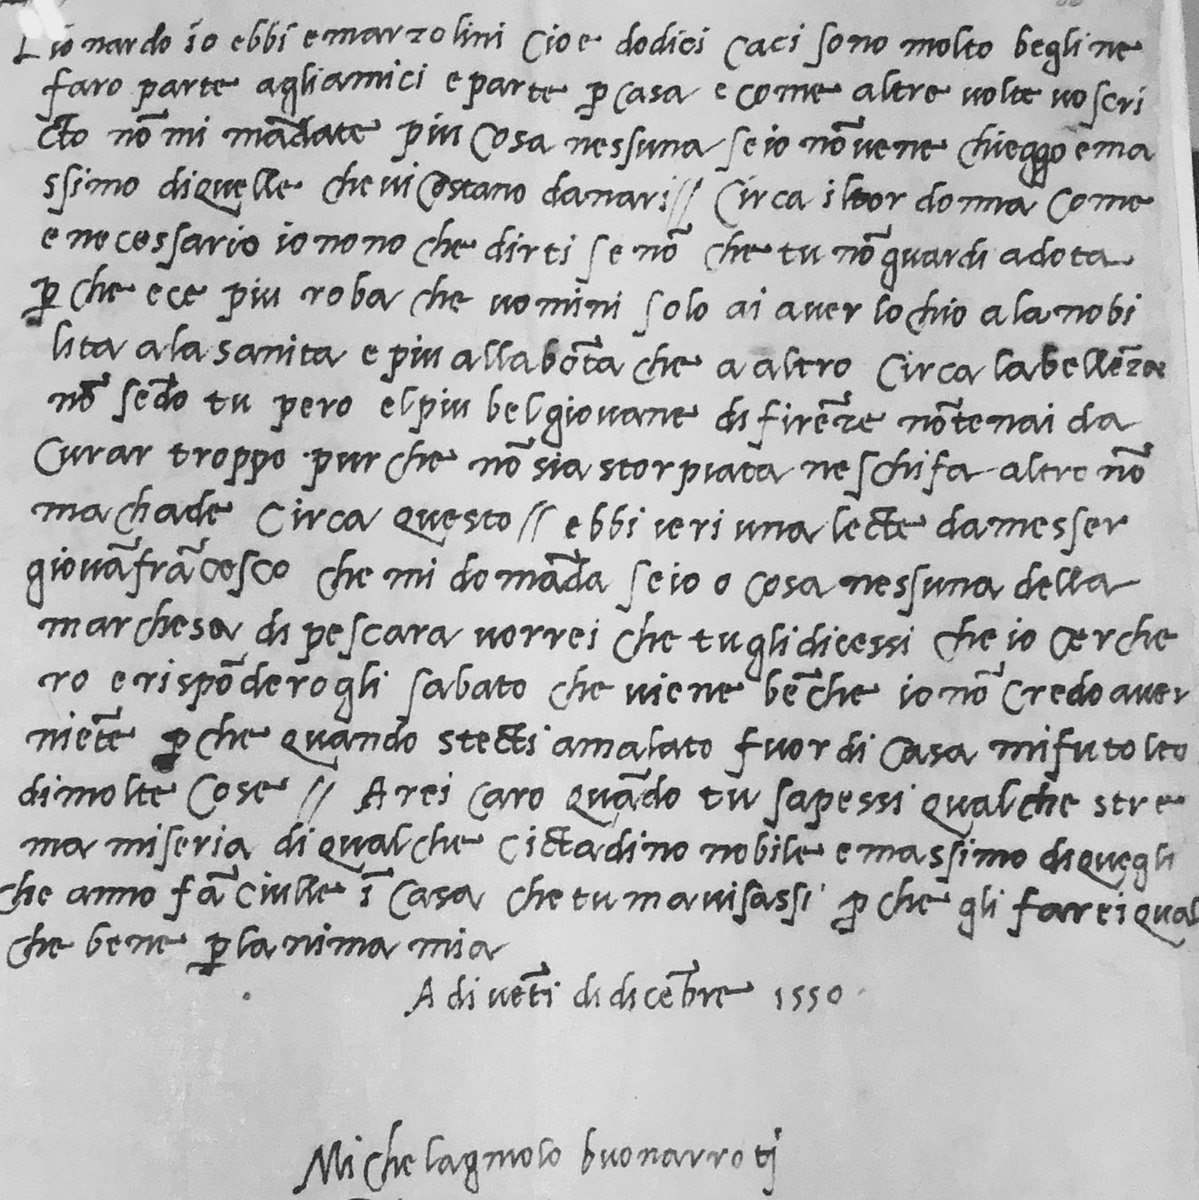 Lionardo io ebbi e marzolini cioe dodici caci sono molto begli ne
faro parte agli amici e parte p casa e come altre volte vo scri
cto nō mi mādate piu cosa nessuna se io nō ve ne chieggo e ma
ssimo di quelle che vi costano danari // Circa il tor donna come
e necessario io non o che dirti se nō che tu nō guardi a dota
p che e ce piu roba che uomini solo ai aver lochio a la nobi
lita a la sanita e piu alla bōta che a altro Circa la bellēza
nō sēdo tu pero el piu bel giovane di firēze nō te n ai da
curar troppo pur che nō sia storpiata ne schifa altro nō
m achade circa questo // ebbi ieri una lecte da messer
giovāfrācesco che mi domāda se io o cosa nessuna della
marchesa di pescara vorrei che tu gli dicessi che io cerche
ro e rispōderogli sabato che viene bēche io nō credo aver
niēte p che quando stecti amalato fuor di casa mi fu tolto
di molte cose // Arei caro quādo tu sapessi qualche stre
ma miseria di qualche cictadino nobile e massimo di quegli
che anno fāciulle ī casa che tu m avisassi p che gli farei qual
che bene p l anima mia
A di vēti di dicēbre 1550
Michelagniolo buonarroti